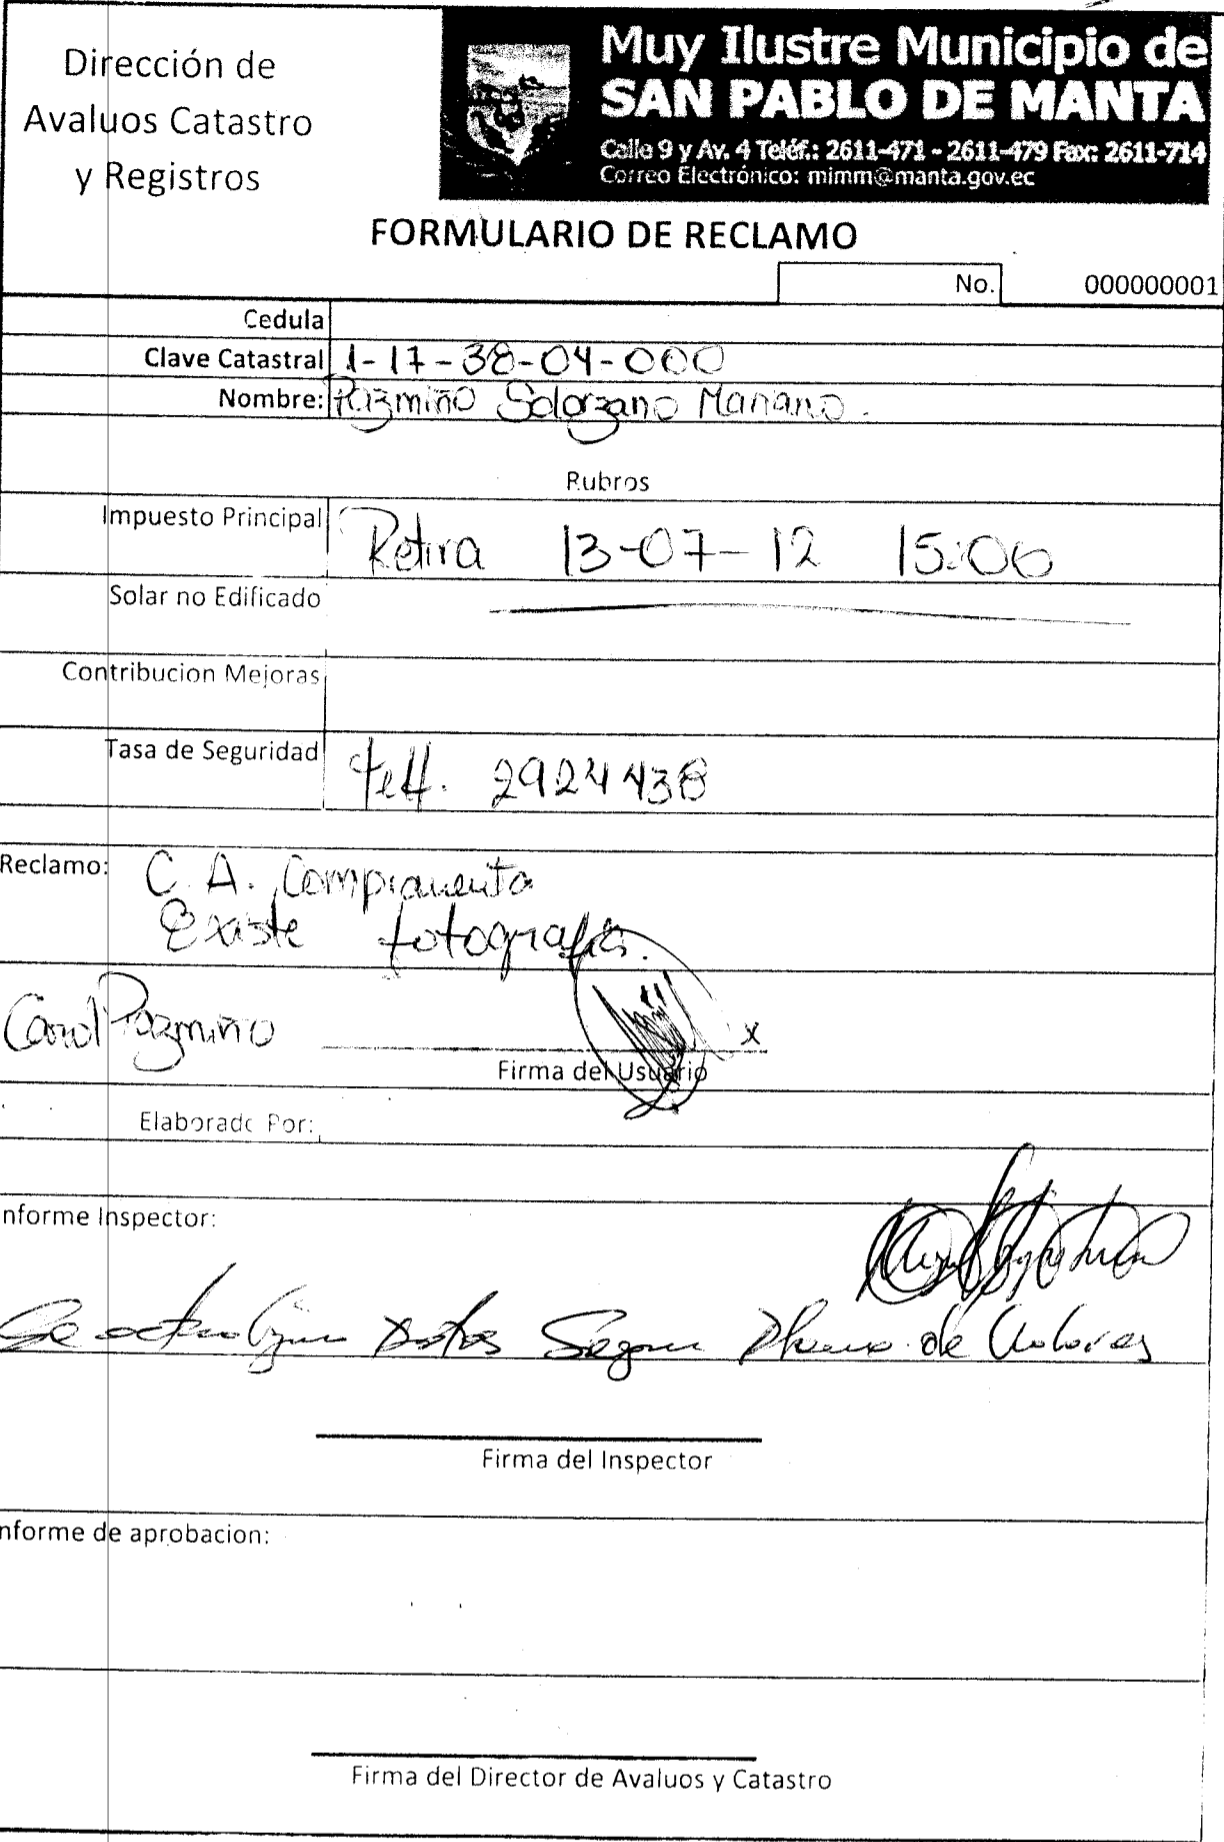 Dirección de
Avaluos Catastro
y Registros
Muy Ilustre Municipio de
SAN PABLO DE MANTA
Calle 9 y Av. 4 Teléf.: 2611-471 - 2611-479 Fax: 2611-714
Correo Electrónico: mimm@manta.gov.ec
FORMULARIO DE RECLAMO
No. 000000001
Cedula
Clave Catastral 1-17-38-04-000
Nombre: Pazmiño Solorzano Mariano.
Rubros
Impuesto Principal Retira 13-07-12 15:06
Solar no Edificado
Contribucion Mejoras
Tasa de Seguridad Telf. 2924438
Reclamo: C. A. Compraventa
Existe fotografia.
Carol Pazmiño x
Firma del Usuario
Elaborado Por:
nforme Inspector:
Se actualizan Datos Segun Plano de Valores
Firma del Inspector
nforme de aprobacion:
Firma del Director de Avaluos y Catastro